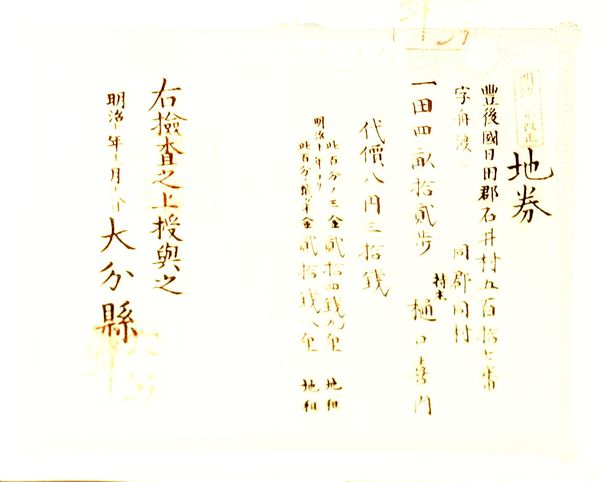 地券
豊後國日田郡石井村五百拾七番
字舟渡
同郡同村
一田四畝拾貳歩
持主 樋口喜内
代價八円三拾銭
此百分ノ三金貳拾四銭九厘 地租
明治十年ヨリ
此百分ノ貳半金貳拾銭八厘 地租
右撿査之上授與之
明治十年十月十
大分縣